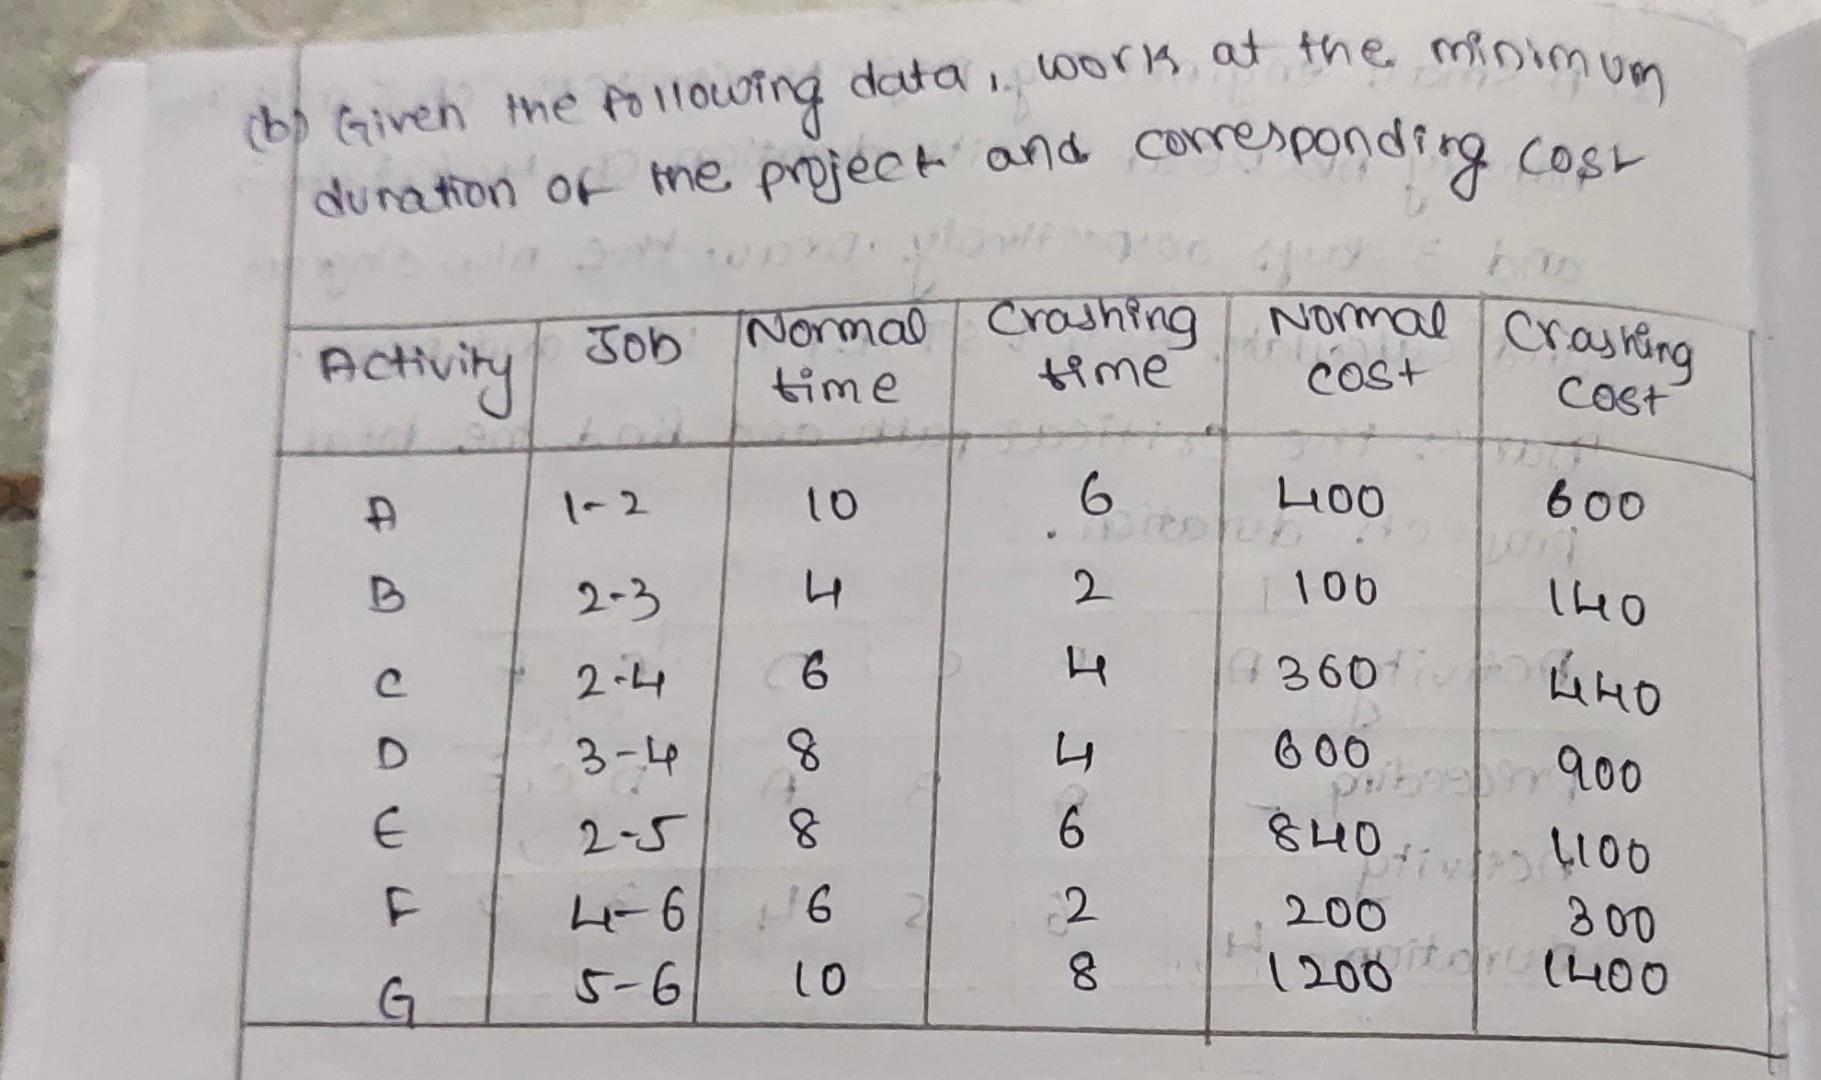 (b) Given the following data, work at the minimum
duration of the project and corresponding cost
Activity Job Normal time Crashing time Normal cost Crashing cost
A 1-2 10 6 400 600
B 2-3 4 2 100 140
C 2-4 6 4 360 440
D 3-4 8 4 600 900
E 2-5 8 6 840 1100
F 4-6 6 2 200 300
G 5-6 10 8 1200 1400